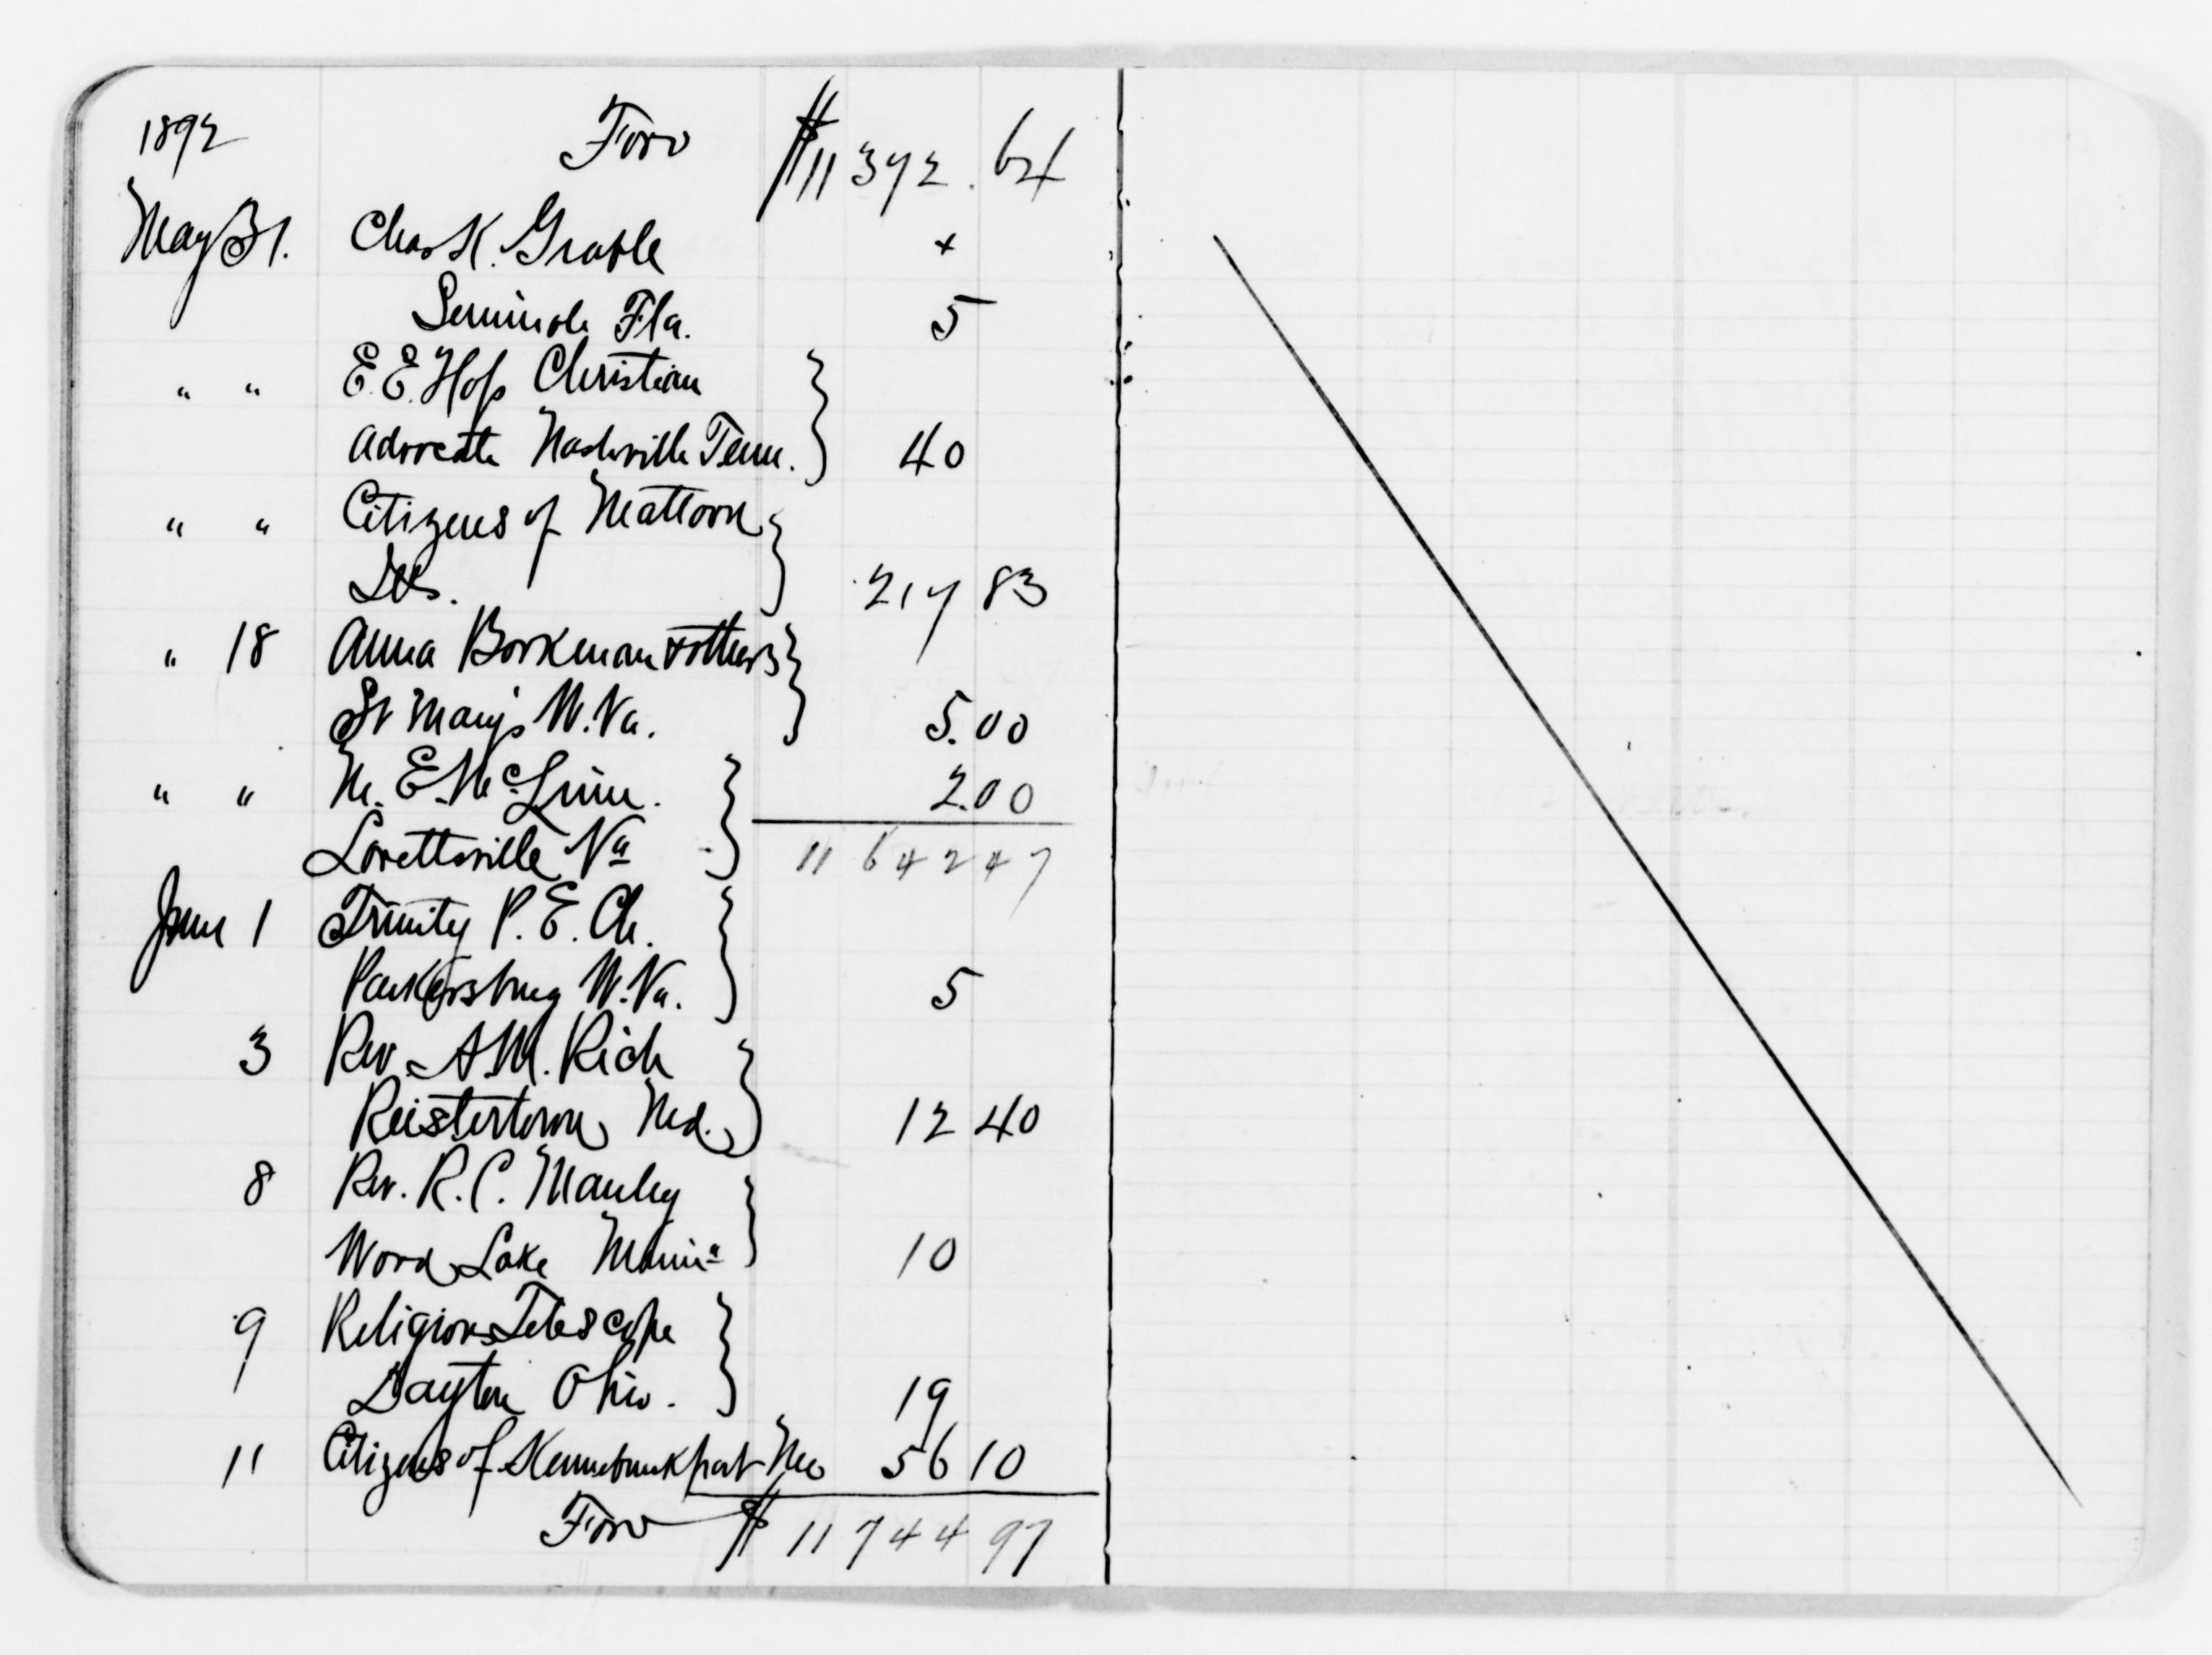 1892 Forw $11 372.64
May 31. Chas K. Grable +
Seminole Fla. 5
" " E. E. Hoss Christian
Advocate Nashville Tenn. 40
" " Citizens of Mattoon
Ills. 217 83
" 18 Anna Borkman & others
St Mary's W. Va. 5.00
" " M. E. McLinn. 2.00
Lovettsville Va 11 642 47
June 1 Trinity P. E. Ch.
Parkersburg W. Va. 5
3 Rev. A. M. Rich
Reistertown Md. 12 40
8 Rev. R. C. Manley
Wood Lake Minn 10
9 Religious Telescope
Dayton Ohio. 19
11 Citizens of Kennebunkport Me 56 10
Forw $ 11 744 97